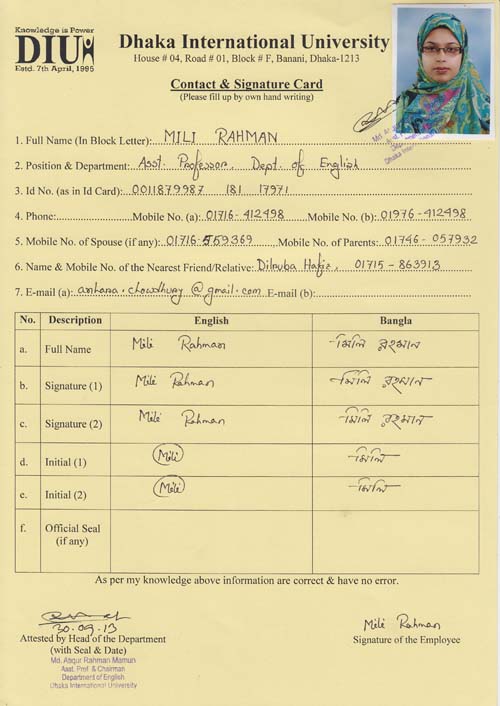 Knowledge is Power
DIU
Estd. 7th April, 1995
Dhaka International University
House # 04, Road # 01, Block # F, Banani, Dhaka-1213
Contact & Signature Card
(Please fill up by own hand writing)
Md. Asqur
Department
Dhaka International
1. Full Name (In Block Letter): MILI RAHMAN
2. Position & Department: Asst. Professor, Dept. of English
3. Id No. (as in Id Card): 0011879987 181 17971
4. Phone: Mobile No. (a): 01716-412498 Mobile No. (b): 01976-412498
5. Mobile No. of Spouse (if any): 01716-559369 Mobile No. of Parents: 01746-057932
6. Name & Mobile No. of the Nearest Friend/Relative: Dilruba Hafiz, 01715-863913
7. E-mail (a): anhara.chowdhury@gmail.com E-mail (b):
No. Description English Bangla
a. Full Name Mili Rahman মিলি রহমান
b. Signature (1) Mili Rahman মিলি রহমান
c. Signature (2) Mili Rahman মিলি রহমান
d. Initial (1) Mili মিলি
e. Initial (2) Mili মিলি
f. Official Seal
(if any)
As per my knowledge above information are correct & have no error.
30.09.13
Attested by Head of the Department
(with Seal & Date)
Md. Asqur Rahman Mamun
Asst. Prof. & Chairman
Department of English
Dhaka International University
Mili Rahman
Signature of the Employee